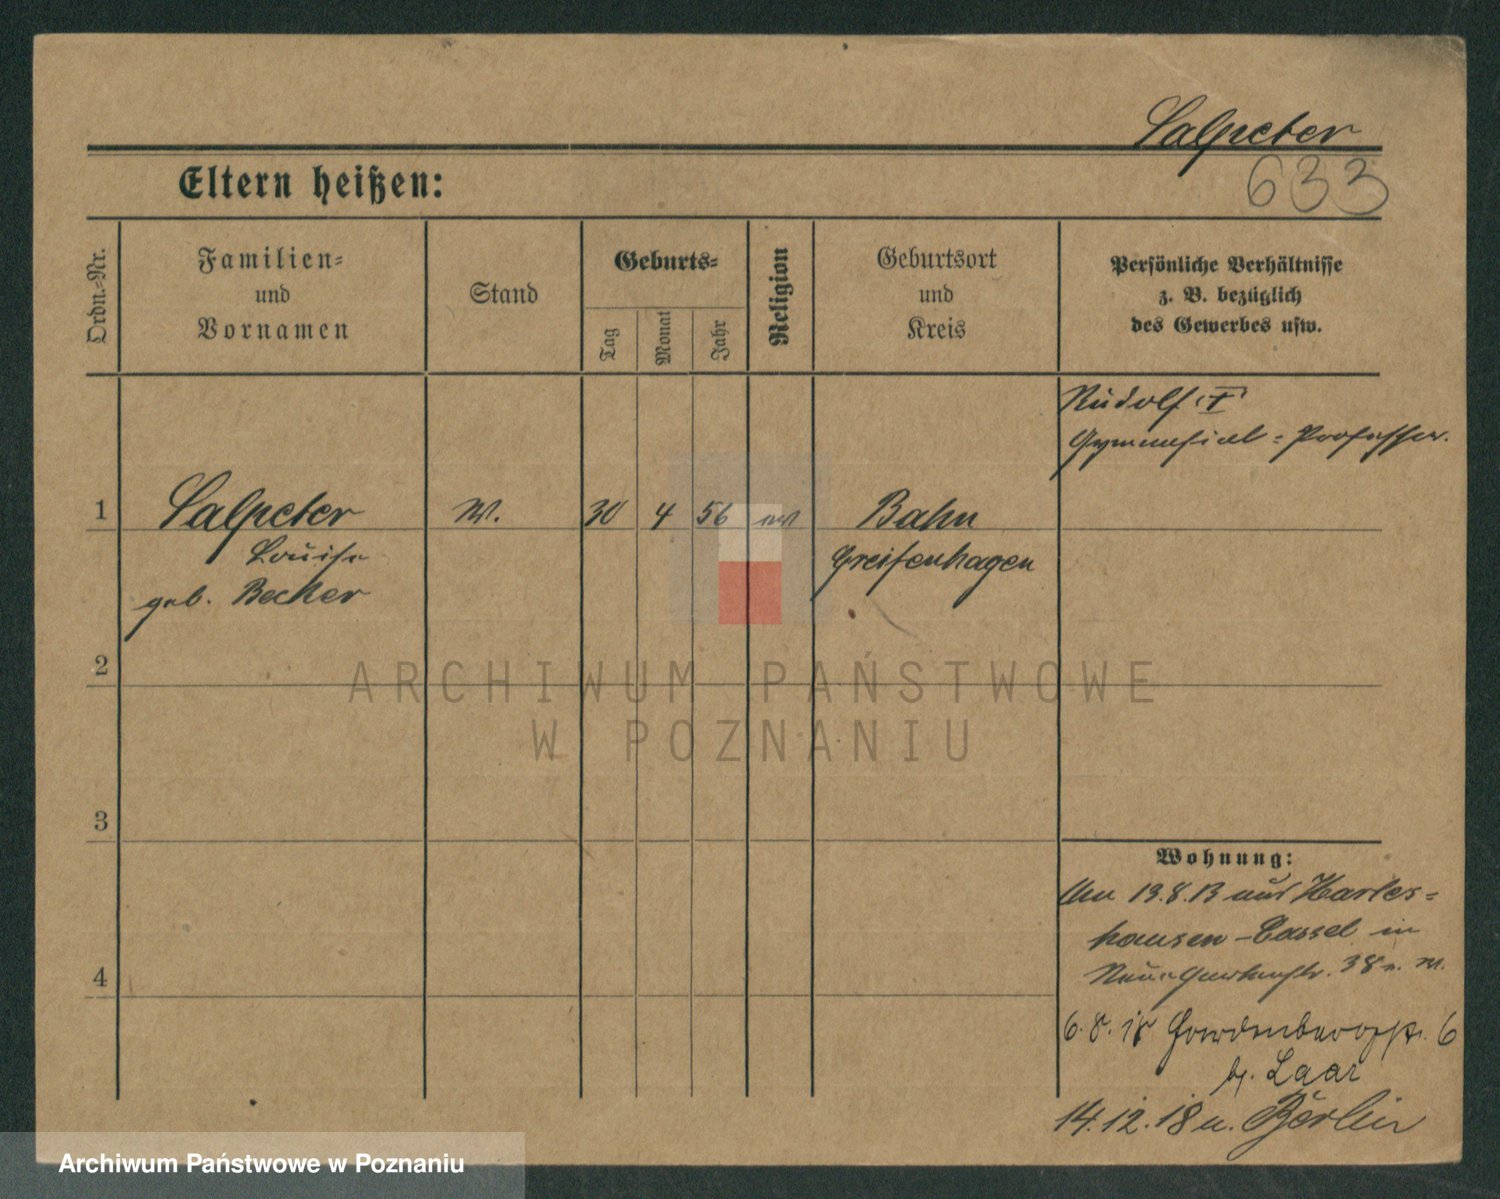 Salpeter
633
Eltern heißen:
Ordn.-Nr.
Familien-
und
Vornamen
Stand
Geburts-
Tag
Monat
Jahr
Religion
Geburtsort
und
Kreis
Persönliche Verhältnisse
z. B. bezüglich
des Gewerbes usw.
Rudolf (†)
Gymnasial-Professor.
1
Salpeter
W.
30
4
56
ev
Bahn
Louise
geb. Becker
Greifenhagen
2
ARCHIWUM PAŃSTWOWE
W POZNANIU
3
Wohnung:
13.8.13 aus Harles-
hausen-Cassel in
Neue Gartenstr. 38
6.8.18 6
b/. Laar
14.12.18 n. Berlin
4
Archiwum Państwowe w Poznaniu